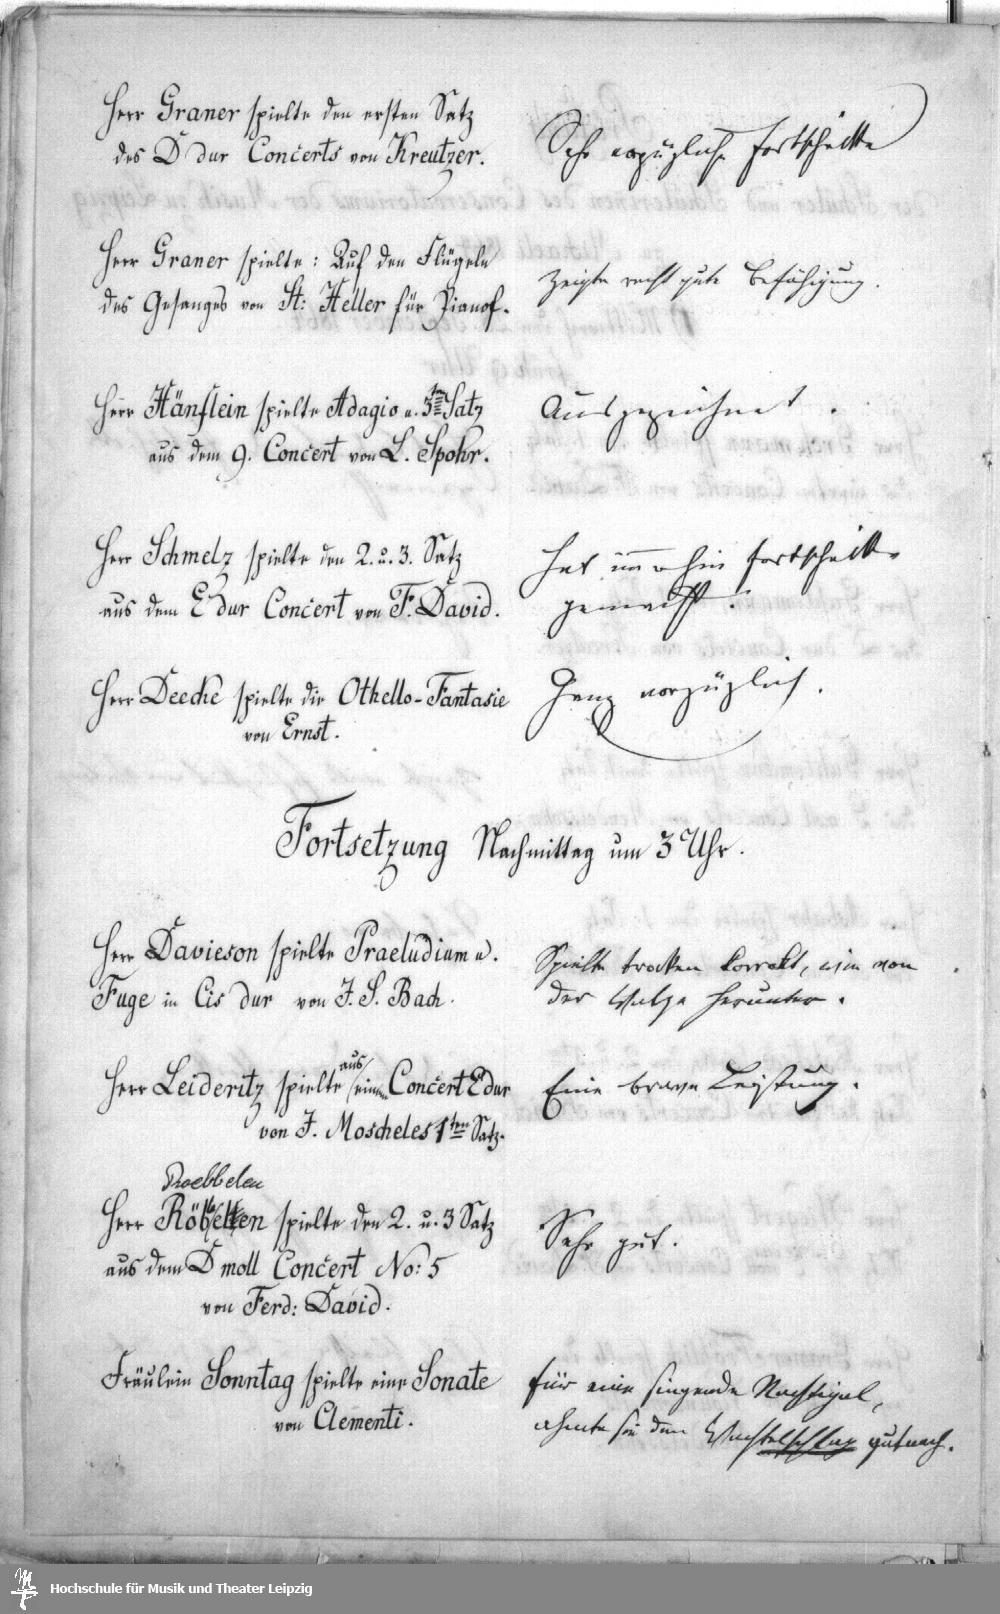 Herr Graner spielte den ersten Satz
des D dur Concerts von Kreutzer.
Sehr vorzügliche Fortschritte
Herr Graner spielte: Auf den Flügeln
des Gesanges von St: Heller für Pianof.
zeigte recht gute Befähigung.
Herr Hänflein spielte Adagio u. 3ten Satz
aus dem 9. Concert von L. Spohr.
Ausgezeichnet.
Herr Schmelz spielte den 2. u. 3. Satz
aus dem E dur Concert von F. David.
hat immerhin Fortschritte
gemacht.
Herr Deecke spielte die Othello-Fantasie
von Ernst.
Ganz vorzüglich.
Fortsetzung Nachmittag um 3 Uhr.
Herr Davieson spielte Praeludium u.
Fuge in Cis dur von J. S. Bach.
Spielte trocken korrekt, wie von
der Walze herunter.
Herr Leideritz spielte aus einem Concert E dur
von J. Moscheles 1ten Satz.
Eine brave Leistung.
Roebbelen
Herr spielte den 2. u. 3 Satz
aus dem D moll Concert No: 5
von Ferd: David.
Sehr gut.
Fräulein Sonntag spielte eine Sonate
von Clementi.
für eine singende Nachtigal,
ahmte sie den Wachtelschlag gut nach.
Hochschule für Musik und Theater Leipzig